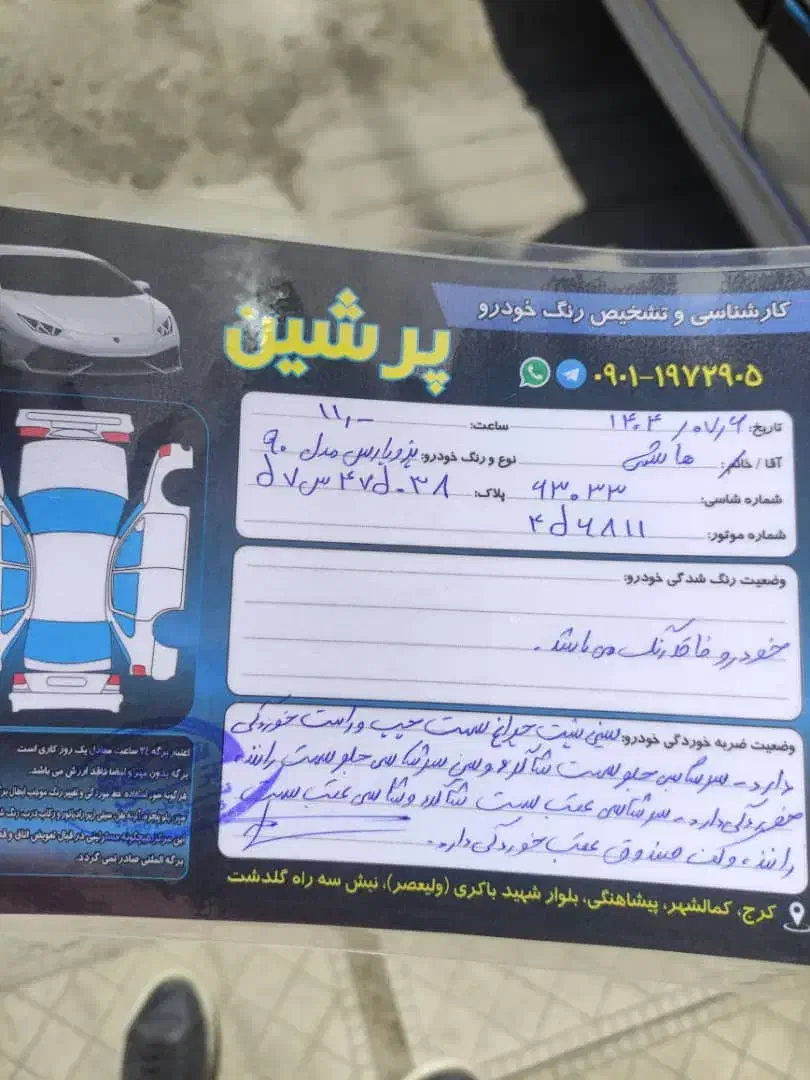 کارشناسی و تشخیص رنگ خودرو
پرشین
۰۹۰۱-۱۹۷۲۹۰۵
تاریخ: ۱۴۰۴/۰۷/۶ ساعت: ۱۱,-
آقا / خانم: هاشمی نوع و رنگ خودرو: پژو پارس مدل ۹۰
شماره شاسی: ۶۳۰۳۳ پلاک:
شماره موتور:
وضعیت رنگ شدگی خودرو:
خودرو فاقد رنگ می باشد.
وضعیت ضربه خوردگی خودرو: سینی پشت چراغ سمت چپ و راست خوردگی
دارد - سرشاسی جلو سمت شاگرد و سرشاسی جلو سمت راننده
خوردگی دارد - سرشاسی عقب سمت شاگرد و شاسی عقب سمت
راننده و کف صندوق عقب خوردگی دارد.
اعتبار برگه ۲۴ ساعت معادل یک روز کاری است
برگه بدون مهر و امضا فاقد ارزش می باشد.
برگه المثنی صادر نمی گردد.
کرج، کمالشهر، پیشاهنگی، بلوار شهید باکری (ولیعصر)، نبش سه راه گلدشت